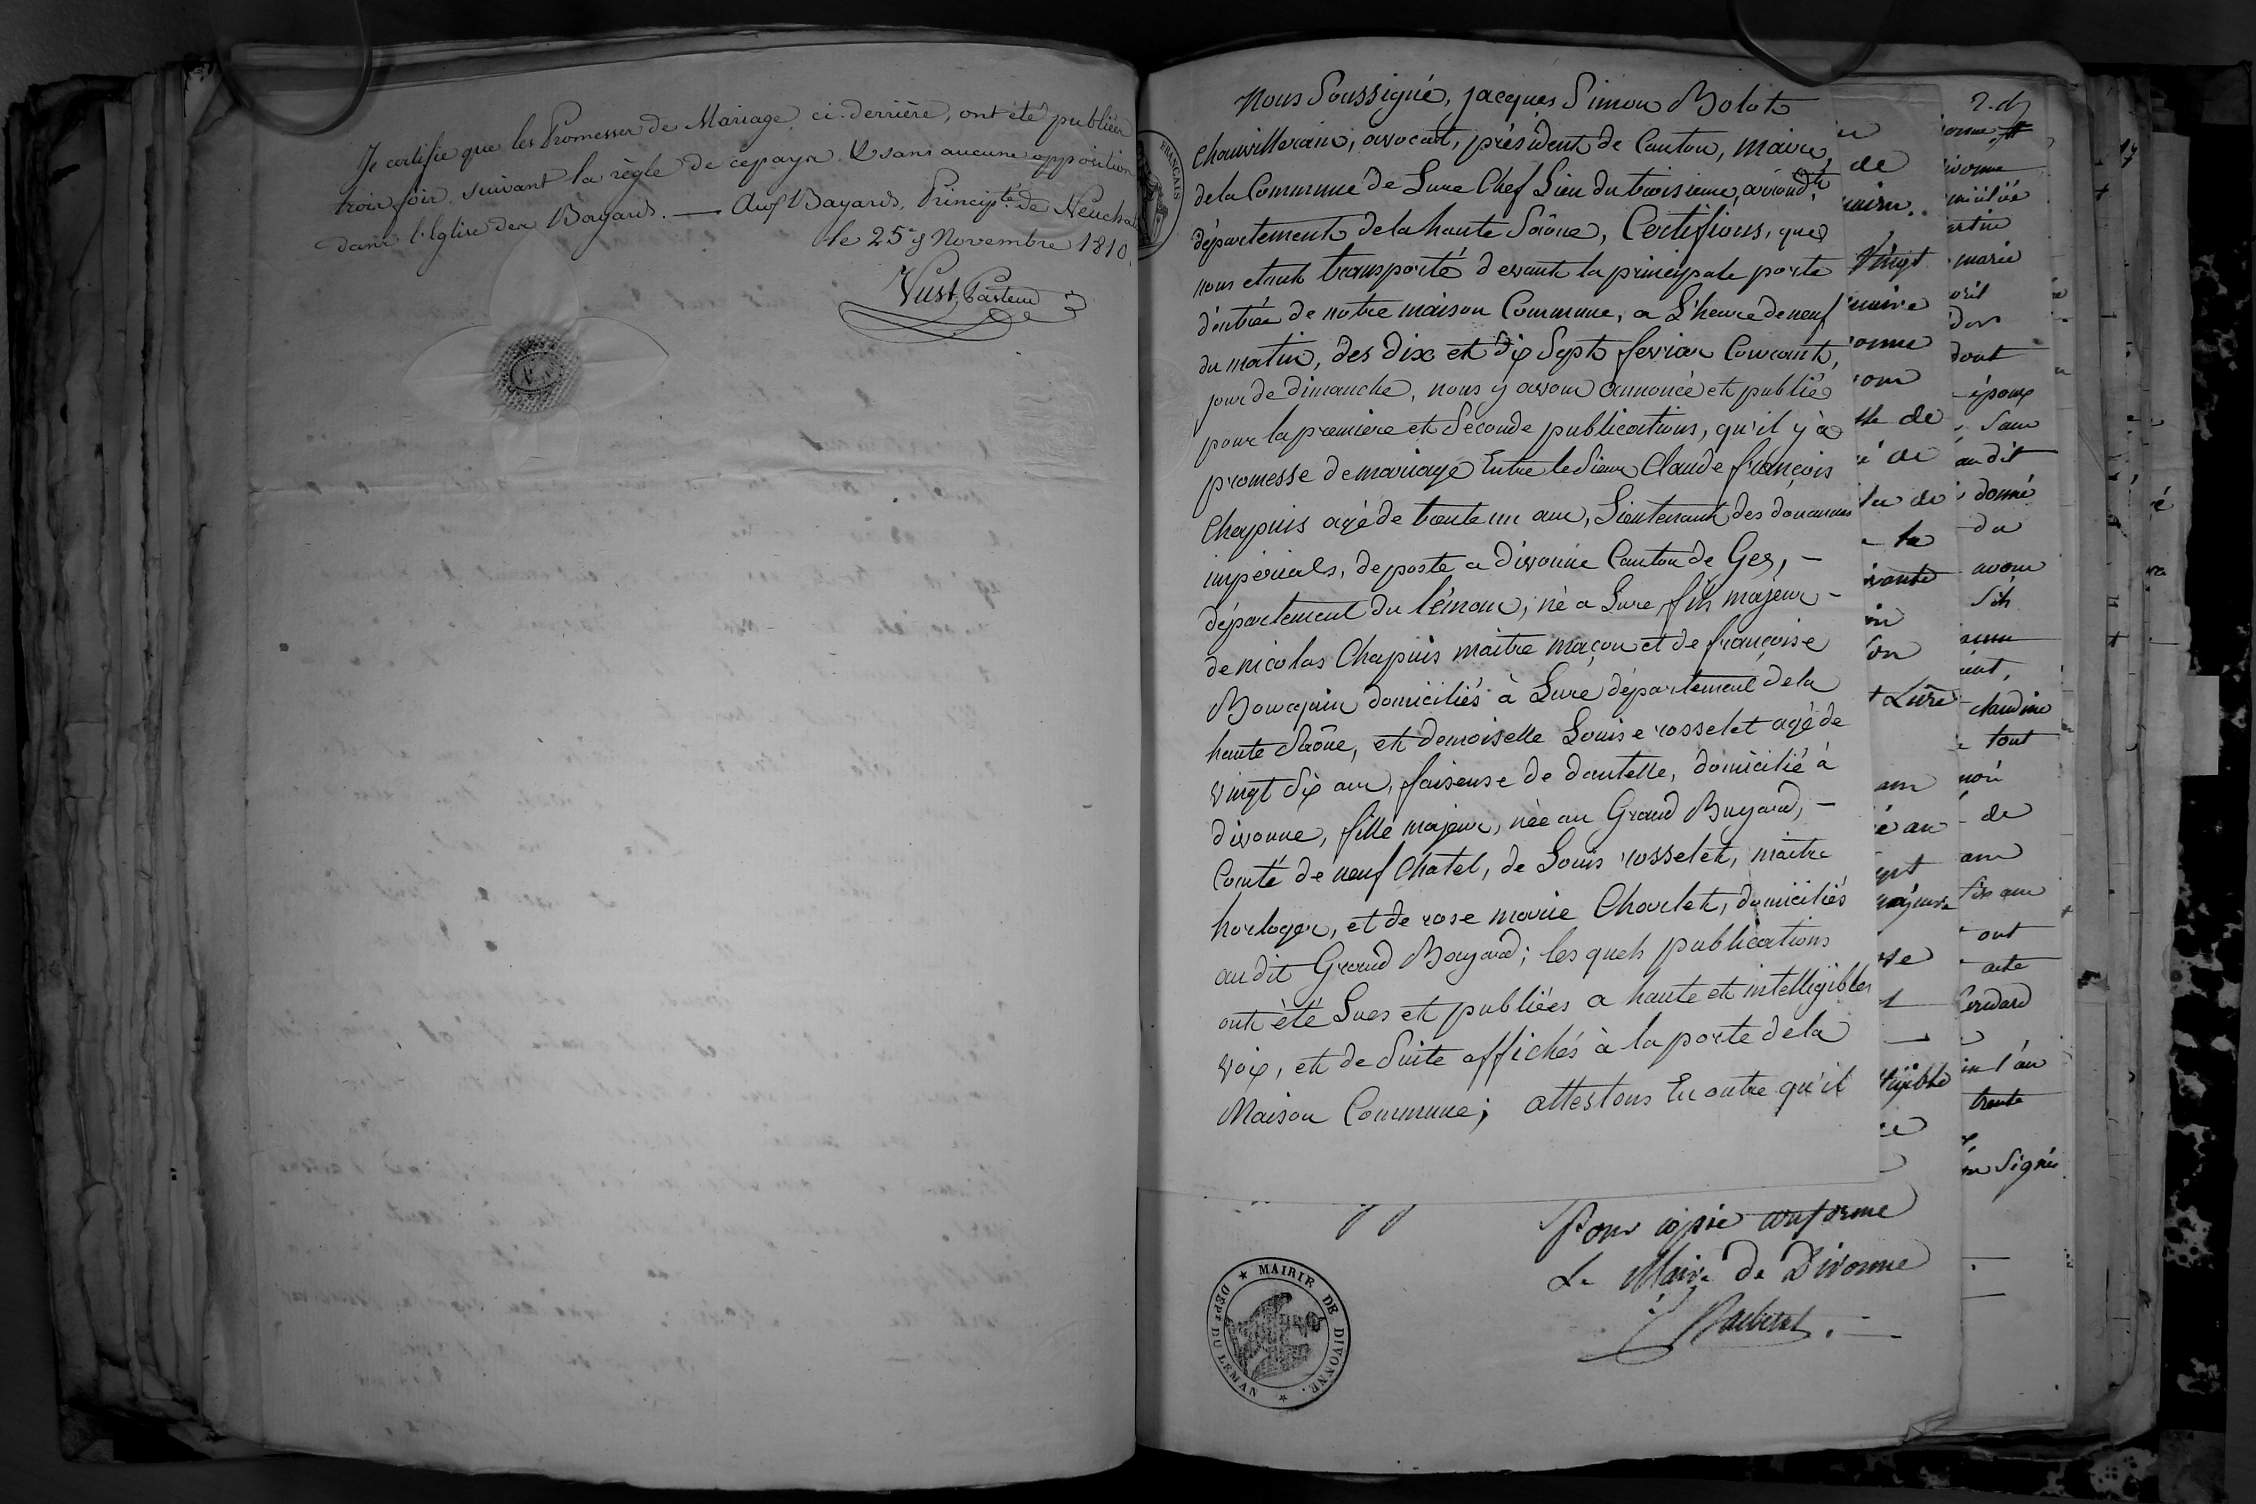 Je certifie que les Promesses de Mariage ci-derrière, ont été publiées
trois fois suivant la règle de ce pays & sans aucune opposition
dans l'Eglise des Bayards. — Aux Bayards, Princip.té de Neuchat
le 25e 9 Novembre 1810.
Vust, Pasteur
Nous Soussigné, Jacques Simon Bolot
Chauvillerain, avocat, président de Canton, maire,
de la Commune de Lure Chef Lieu du troisieme, arrond.t
département de la haute Saône, Certifions, que
nous etant transporté devant la principale porte
d'entrée de notre maison Commune, a L'heure de neuf
du matin, des dix et dix Sept fevrier Courant,
jour de dimanche, nous y avons annoncé et publié
pour la premiere et Seconde publications, qu'il y à
promesse de mariage Entre le Sieur Claude françois
Chapuis agé de trente un ans, Lieutenant des douannes
imperials, de poste a divonne Canton de Gex, —
département du léman, né a Lure, fils majeur —
de nicolas Chapuis maitre maçon et de françoise
Bourquin domiciliés à Lure département de la
haute Saône, et demoiselle Louise rosselet agé de
vingt Six ans, faiseuse de dantelle, domicilié à
divonne, fille majeur, née au Grand Bayard, —
Comté de neuf Chatel, de Louis rosselet, maitre
horloger, et de rose marie Charlet, domiciliés
au dit Grand Bayard; les quels publications
ont été Lues et publiées a haute et intelligibles
voix, et de Suite affichés à la porte de la
Maison Commune; attestons En outre qu'il
Pour copie conforme
Le Maire de Divonne
MAIRIE DE DIVONNE.
DEPT DU LEMAN
FRANÇAIS
de
Vingt
de
de
la
Lure
an
2.d
divonne
marié
dont
époux
audit
donné
du
avons
claudine
tout
de
ont
acte
l'an
trente
Signé